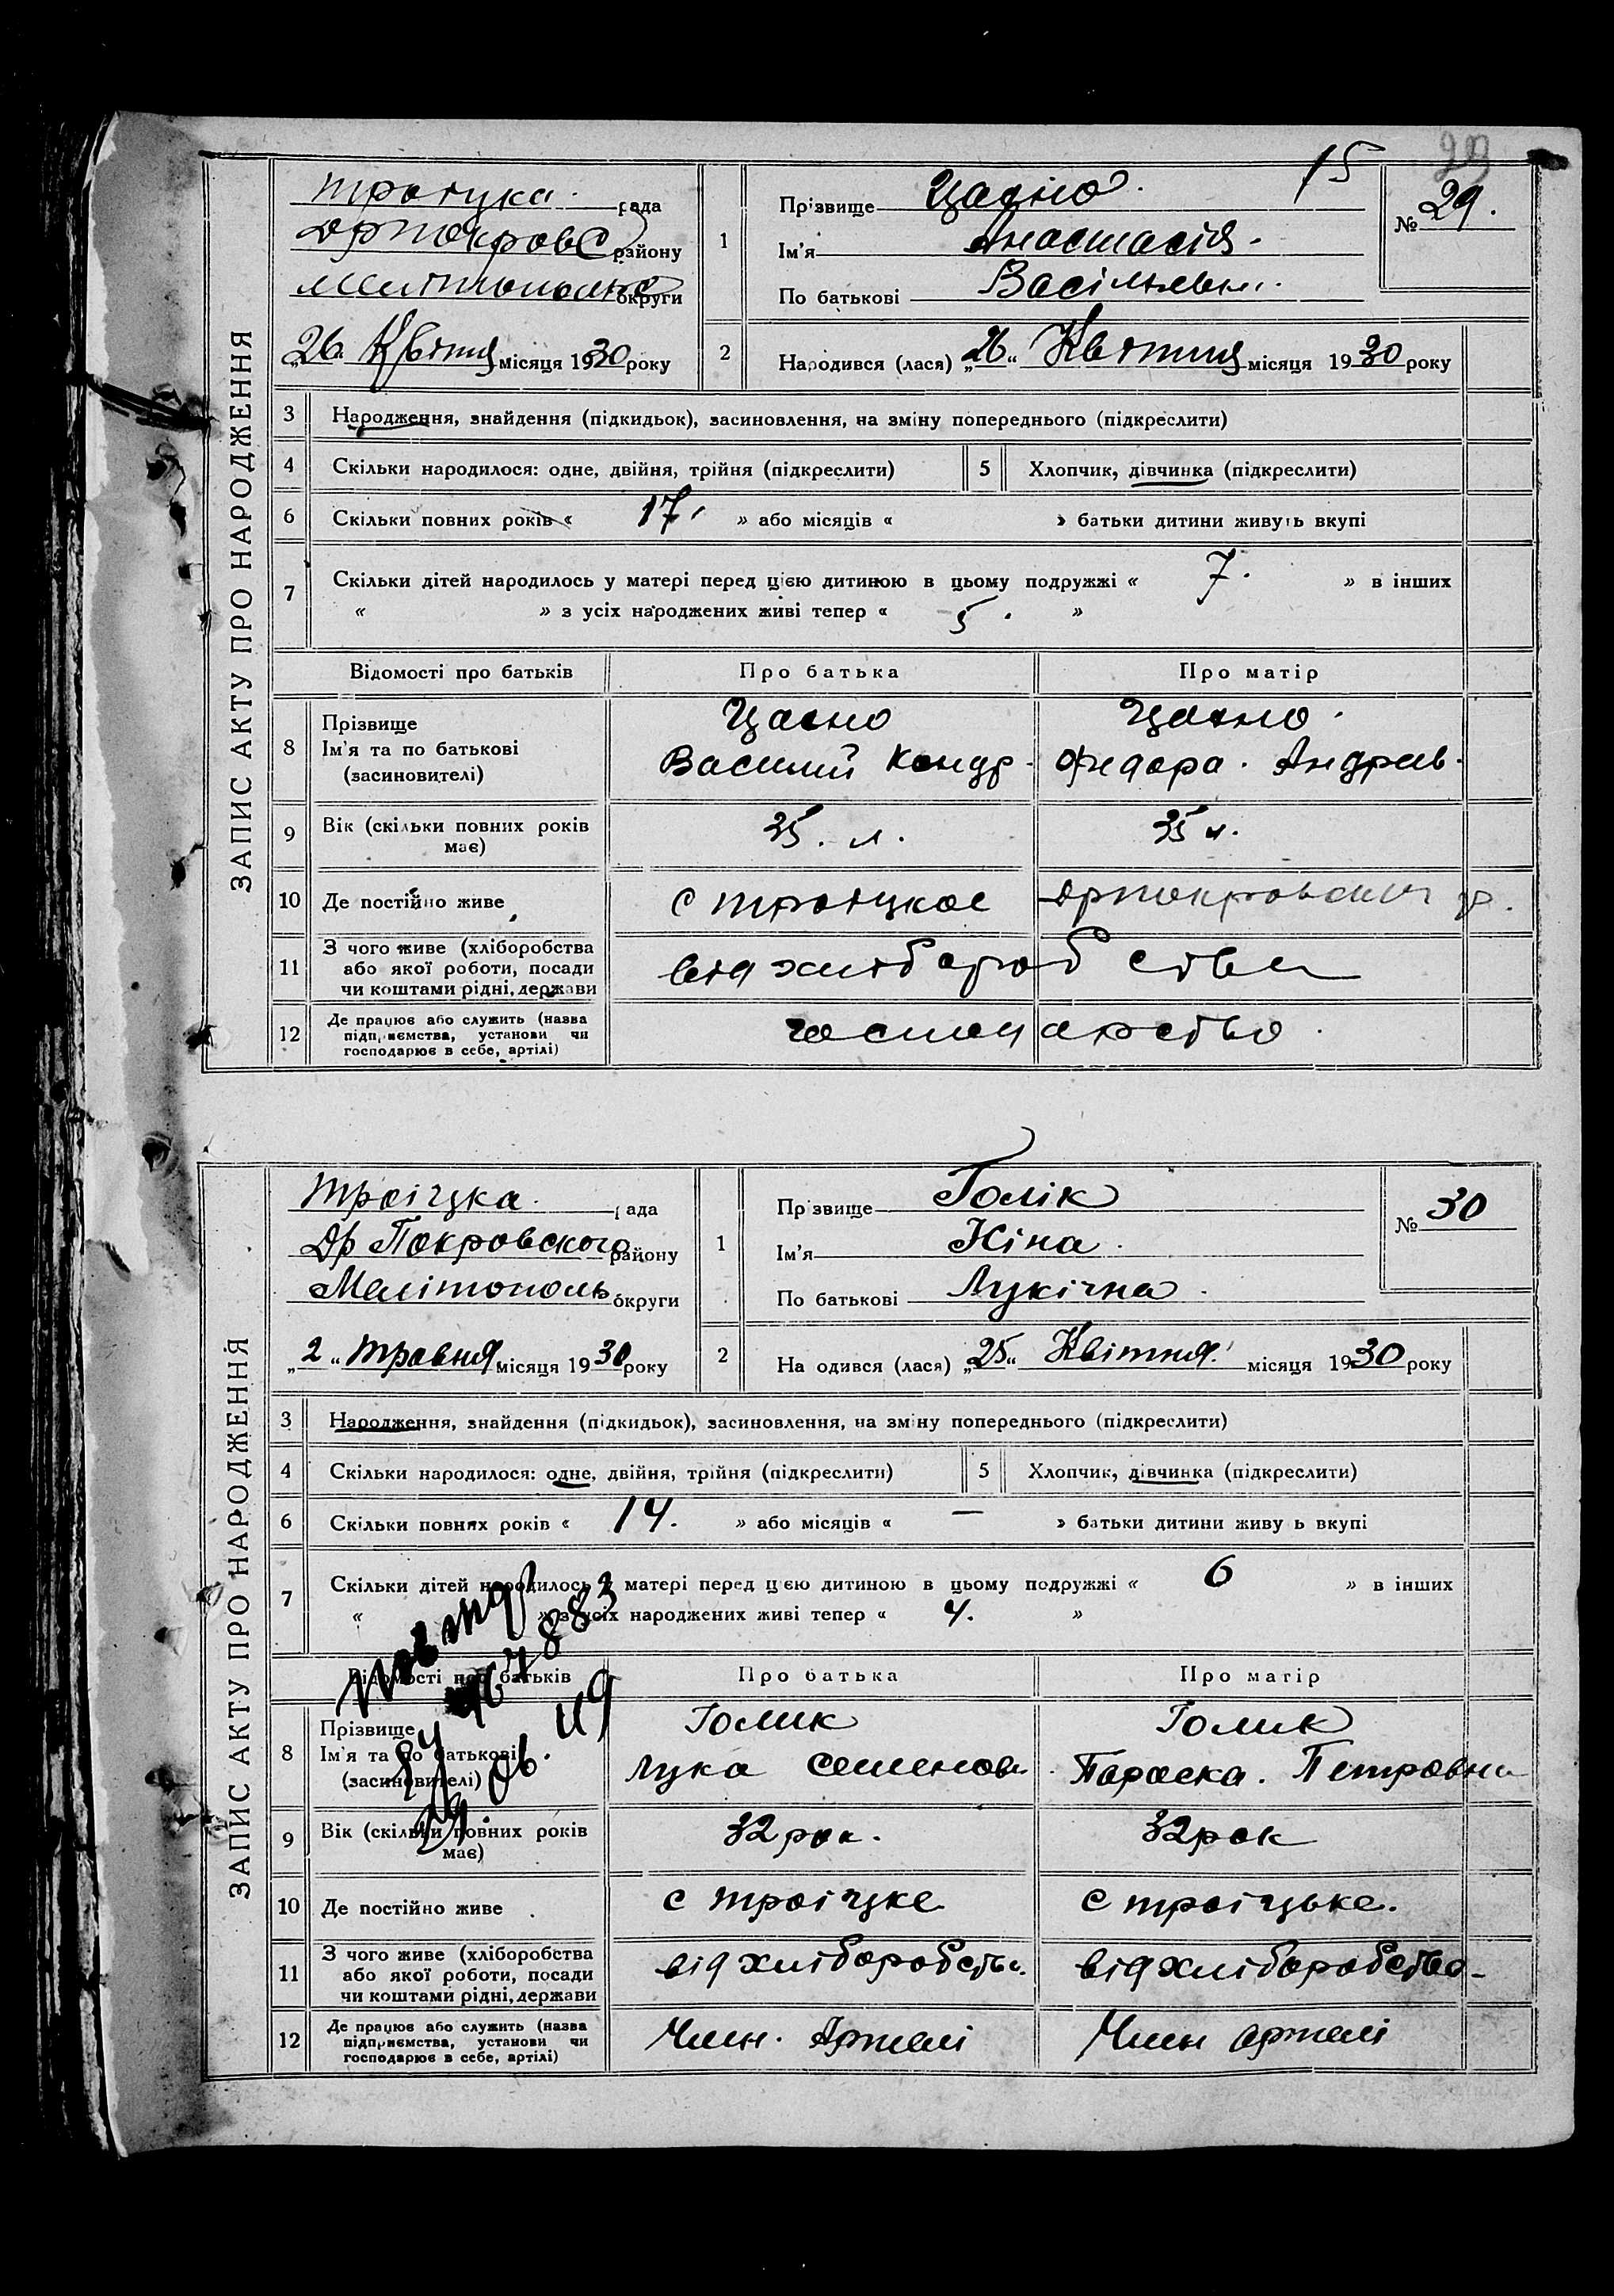 29
15
ЗАПИС АКТУ ПРО НАРОДЖЕННЯ
Троіцка рада
Дрпокровс району
округи
„26“ Квітня місяця 1930 року
1
Прізвище
Ім'я Анастасія.
По батькові Васільевн.
№ 29.
2
Народився (лася) „26“ Квітня місяця 1930 року
3 Народження, знайдення (підкидьок), засиновлення, на зміну попереднього (підкреслити)
4 Скільки народилося: одне, двійня, трійня (підкреслити) 5 Хлопчик, дівчинка (підкреслити)
6 Скільки повних років « 17. » або місяців « » батьки дитини живуть вкупі
7 Скільки дітей народилось у матері перед цією дитиною в цьому подружжі « 7. » в інших
« » з усіх народжених живі тепер « 5. »
Відомості про батьків Про батька Про матір
8 Прізвище
Ім'я та по батькові
(засиновителі)
Василий Кондр.
Федора. Андрев.
9 Вік (скільки повних років має) 35. л. 35 л.
10 Де постійно живе с Троіцкое Дрпокровский р.
11 З чого живе (хліборобства
або якої роботи, посади
чи коштами рідні, держави
від хліборобства
12 Де працює або служить (назва
підприємства, установи чи
господарює в себе, артілі)
господарство.
ЗАПИС АКТУ ПРО НАРОДЖЕННЯ
Троіцка рада
Др Покровского району
Мелітополь. округи
„2“ травня місяця 1930 року
1
Прізвище Голік
Ім'я Ніна.
По батькові Лукічна.
№ 30
2
Народився (лася) „25“ Квітня місяця 1930 року
3 Народження, знайдення (підкидьок), засиновлення, на зміну попереднього (підкреслити)
4 Скільки народилося: одне, двійня, трійня (підкреслити) 5 Хлопчик, дівчинка (підкреслити)
6 Скільки повних років « 14. » або місяців « — » батьки дитини живуть вкупі
7 Скільки дітей народилось у матері перед цією дитиною в цьому подружжі « 6 » в інших
« » з усіх народжених живі тепер « 4. »
Відомості про батьків Про батька Про матір
8 Прізвище
Ім'я та по батькові
(засиновителі)
Голик
Лука Семенов.
Голик
Параска. Петровна
9 Вік (скільки повних років має) 32 рок. 32 рок
10 Де постійно живе с Троіцке с Троіцьке.
11 З чого живе (хліборобства
або якої роботи, посади
чи коштами рідні, держави
від хліборобства від хліборобства
12 Де працює або служить (назва
підприємства, установи чи
господарює в себе, артілі)
Член. Артелі Член артелі